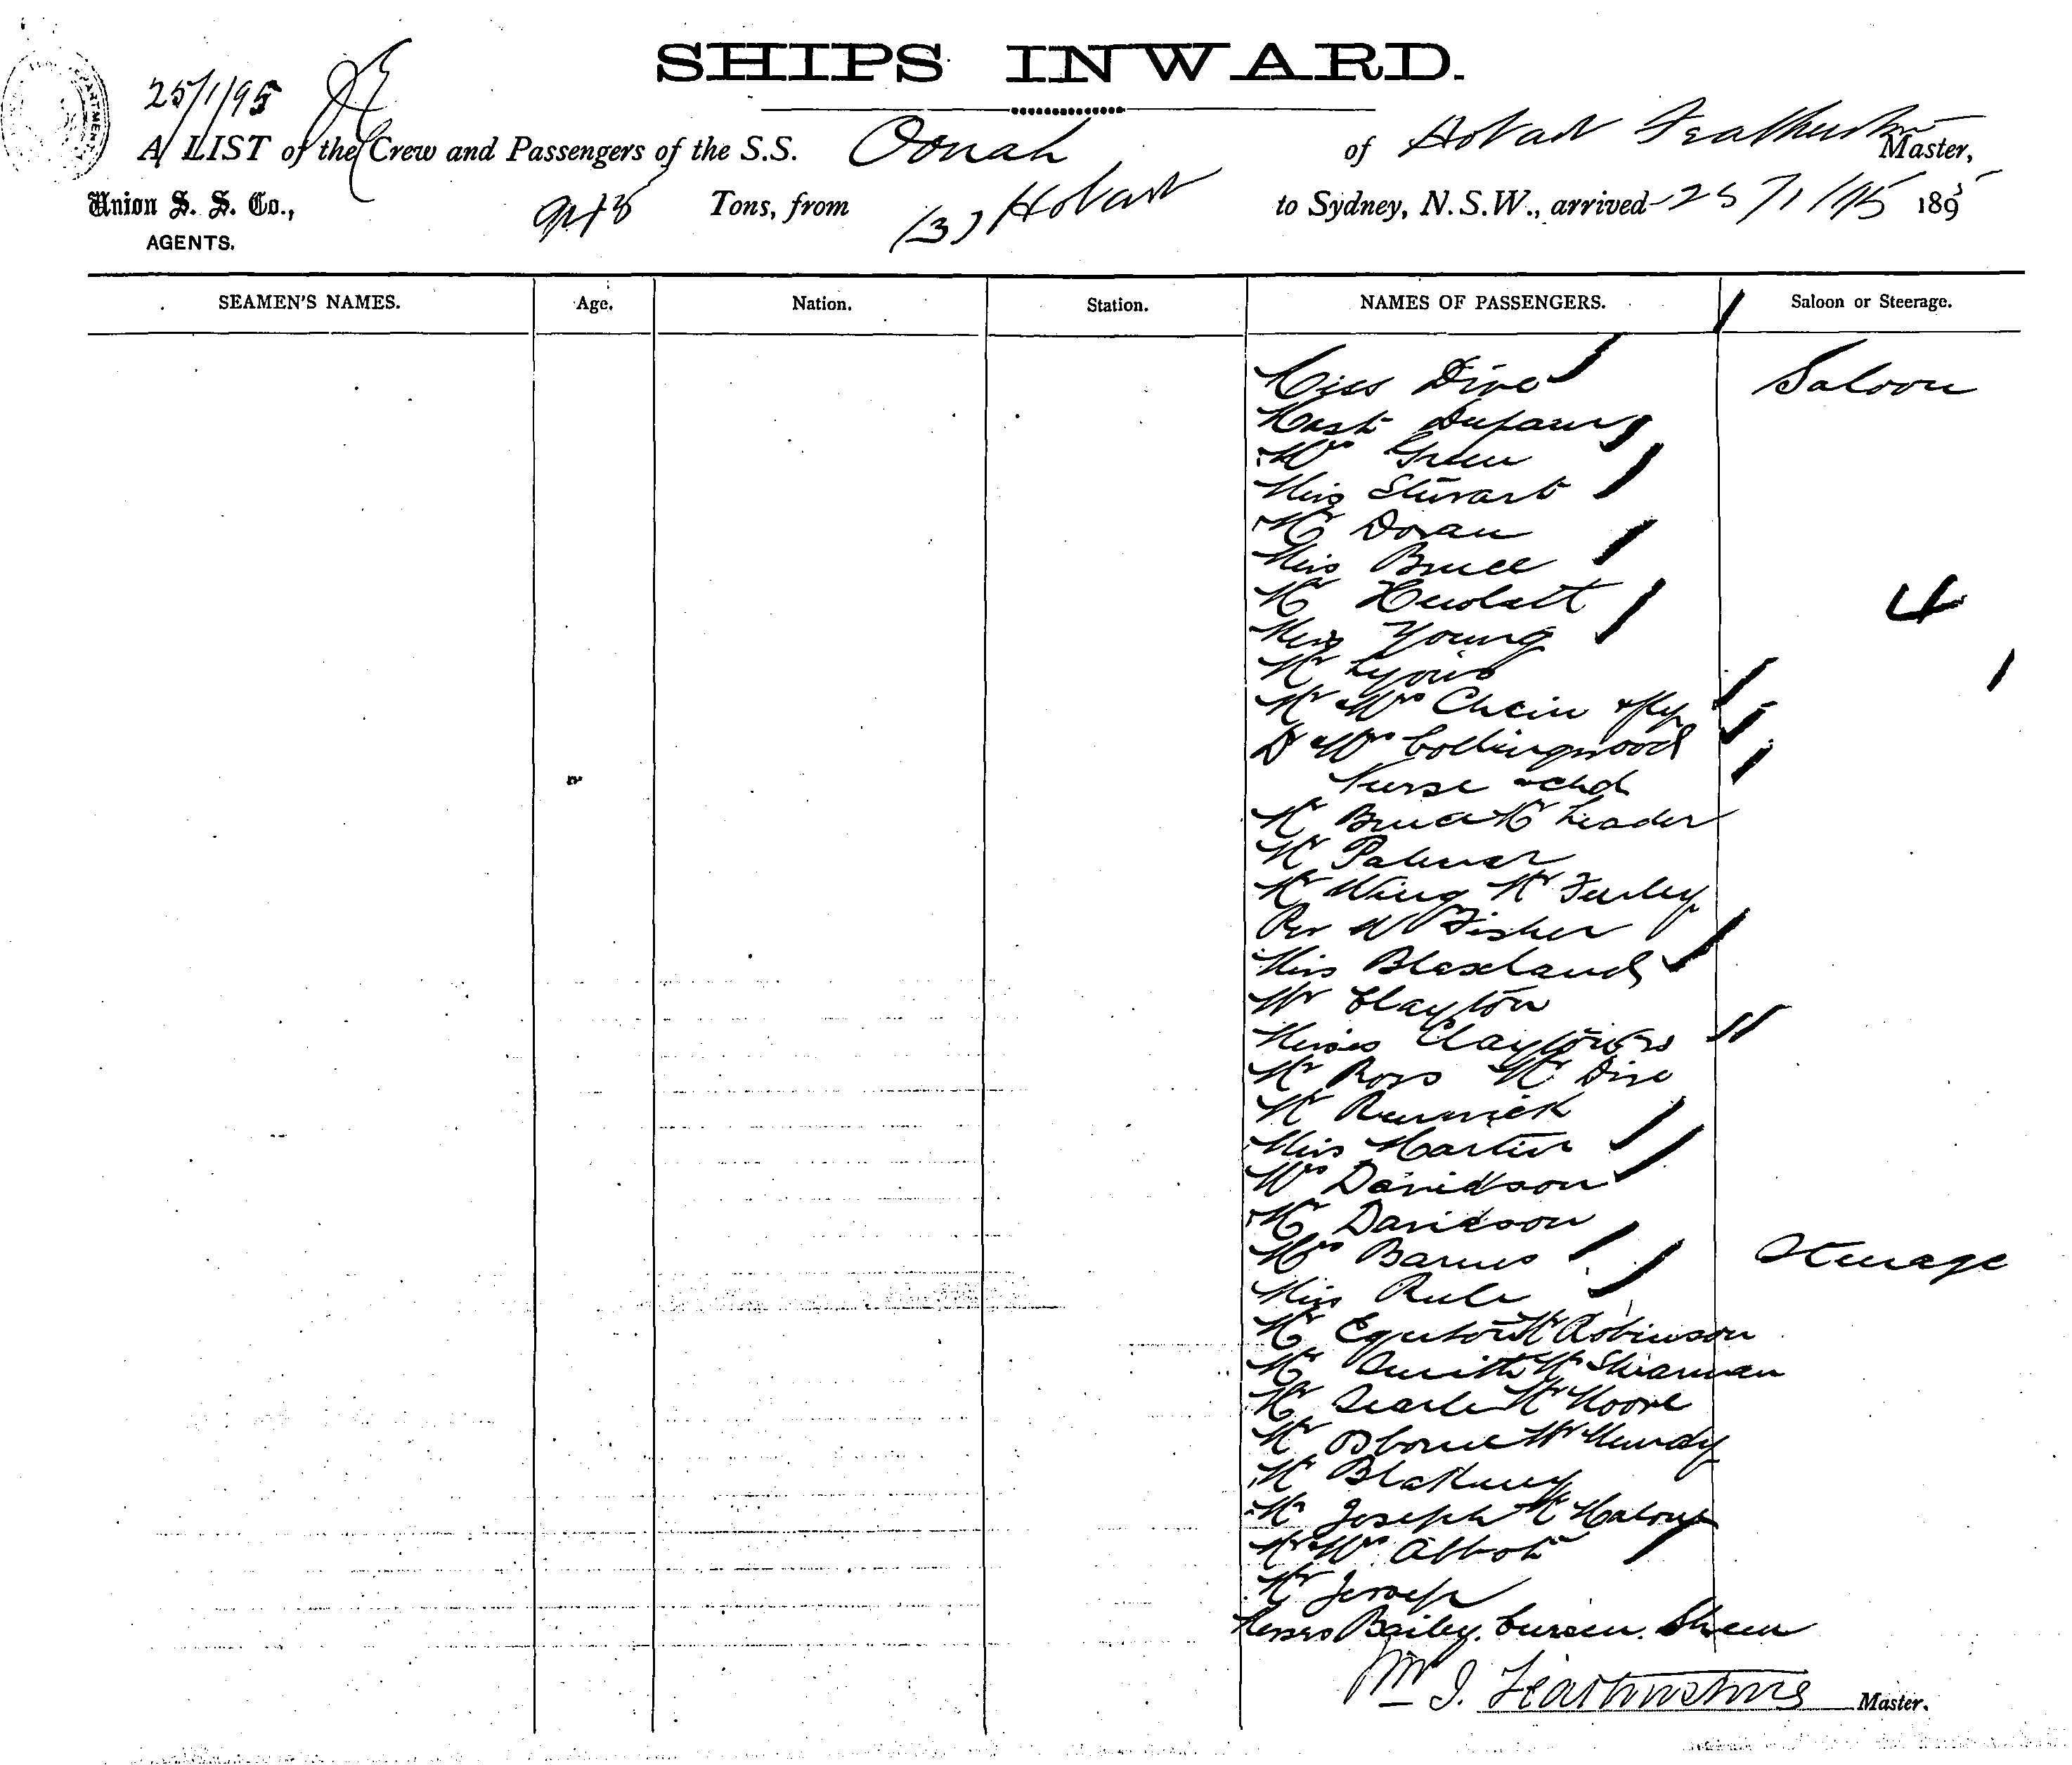 SHIPS INWARD.
25/1/95
A LIST of the Crew and Passengers of the S.S. Oonah of Hobart Featherstone Master,
Union S. S. Co., Tons, from (3) Hobart to Sydney, N.S.W., arrived 25/1/95 1895
AGENTS.
SEAMEN'S NAMES. Age. Nation. Station. NAMES OF PASSENGERS. Saloon or Steerage.
Miss Dive Saloon
Mast
Mrs Green
Miss Stewart
Mr Doran
Miss Bruce
Mr Hewlett 4
Miss Young
Mr Lyons
Mr Mrs
Dr Mrs Collingwood
Nurse & chd
Mr Bruce Mr Leader
Mr Palmer
Mr Wing Mr Furley
Rev W Fisher
Miss Blaxland
Mr Clayton
Misses Claytons
Mr Ross Mr Dive
Mr Renwick
Miss Martin
Mrs Davidson
Mr Davidson
Mrs Barnes Steerage
Miss Rule
Mr Mr Robinson
Mr Smith Mr Shearman
Mr Searle Mr Moore
Mr Osborne Mr Mundy
Mr Blakeney
Mr Joseph Mr
Mr Mrs Abbot
Mr
Messrs Bailey. Sheen
Wm J. Featherstone Master.